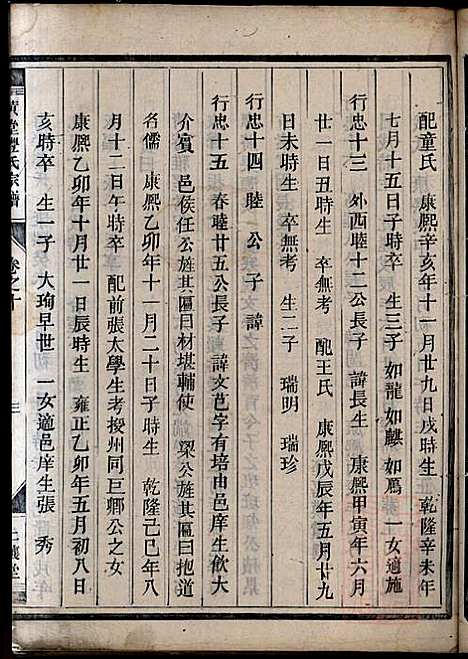 配童氏　康熈辛亥年十一月廿九日戌時生　乾隆辛未年
七月十五日子時卒　生三子　如龍　如麒　如鳳　一女適施
行忠十三　外西睦十二公長子　諱長生　康熈甲寅年六月
廿一日丑時生　卒無考　配王氏　康熈戊辰年五月廿九
日未時生　卒無考　生二子　瑞明　瑞珍
行忠十四　睦　一　公　子　諱
行忠十五　春睦廿五公長子　諱文芑字有培由邑庠生飲大
介賓　邑侯任公旌其匾曰材堪輔使　梁公旌其匾曰抱道
名儒　康熈乙卯年十一月二十日子時生　乾隆己巳年八
月十二日午時卒　配前張大學生考授州同巨卿公之女
康熈乙卯年十月廿一日辰時生　雍正乙卯年五月初八日
亥時卒　生一子　大珣早世　一女適邑庠生張　秀
黄堂豐氏宗譜　卷之十　三